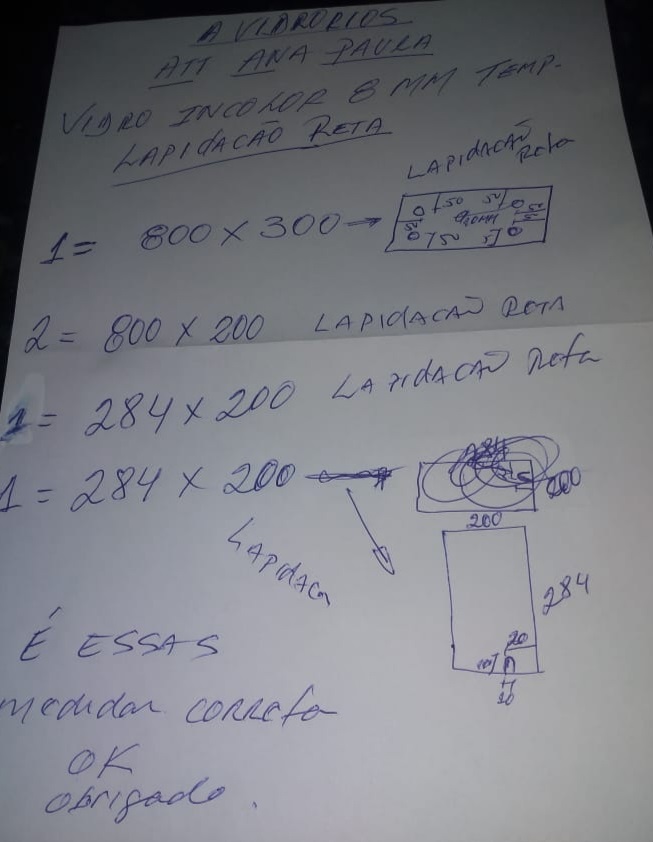 A VIDRORIOS
ATT ANA PAULA
VIDRO INCOLOR 8 MM TEMP.
LAPIDACÃO RETA
LAPIDACÃO Reta
1 = 800 X 300 →
50 50
50 Ø10MM 50
50 5
2 = 800 X 200 LAPIDACÃO RETA
1 = 284 X 200 LAPIDACÃO Reta
1 = 284 X 200
200
284
LAPIDACA
20
10
É ESSAS
medidar correta
OK
obrigado.